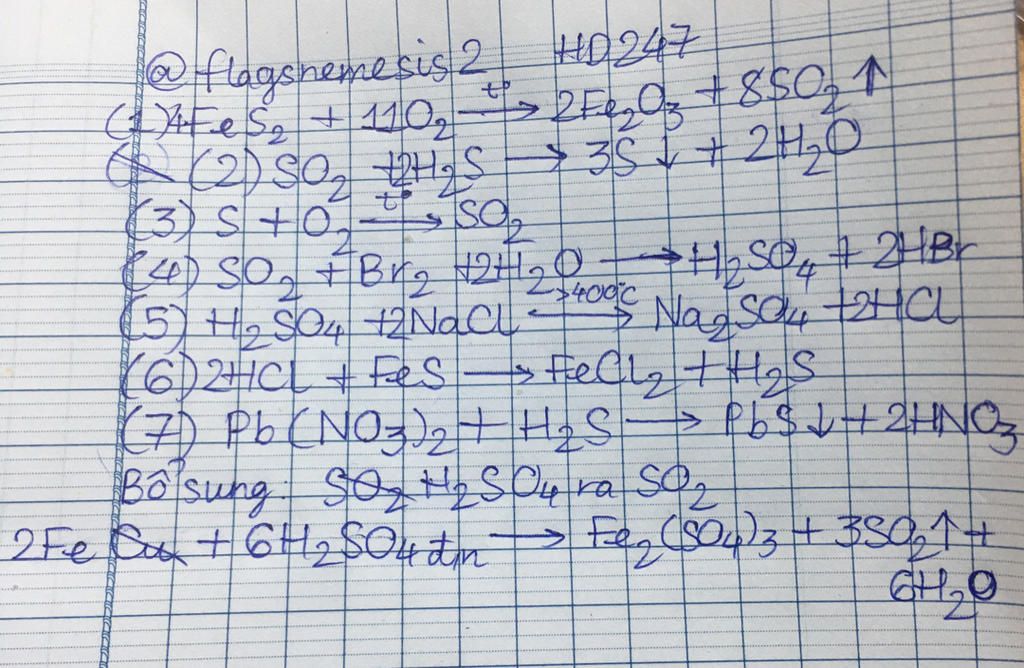 @flagsnemesis2 HD247
(1) 4FeS₂ + 11O₂ t° → 2Fe₂O₃ + 8SO₂ ↑
(2) SO₂ + 2H₂S → 3S ↓ + 2H₂O
(3) S + O₂ t° → SO₂
(4) SO₂ + Br₂ + 2H₂O → H₂SO₄ + 2HBr
(5) H₂SO₄ + 2NaCl >400°C → Na₂SO₄ + 2HCl
(6) 2HCl + FeS → FeCl₂ + H₂S
(7) Pb(NO₃)₂ + H₂S → PbS ↓ + 2HNO₃
Bổ sung: SO₂ H₂SO₄ ra SO₂
2Fe + 6H₂SO₄ đ,n → Fe₂(SO₄)₃ + 3SO₂ ↑ +
6H₂O